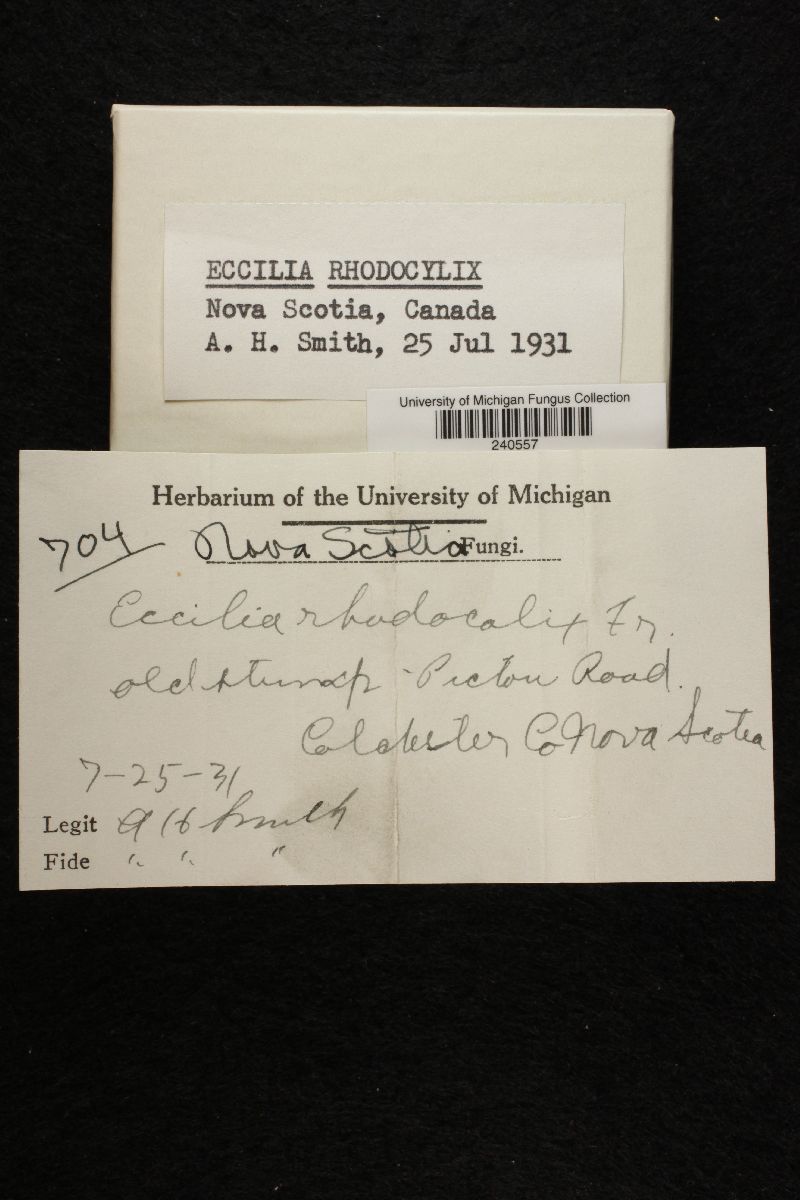 ECCILIA RHODOCYLIX
Nova Scotia, Canada
A. H. Smith, 25 Jul 1931
University of Michigan Fungus Collection
240557
Herbarium of the University of Michigan
704 Nova Scotia Fungi.
Eccilia rhodocalix Fr.
old stump - Pictou Road.
Colchester Co Nova Scotia
7-25-31
Legit A H Smith
Fide " " "